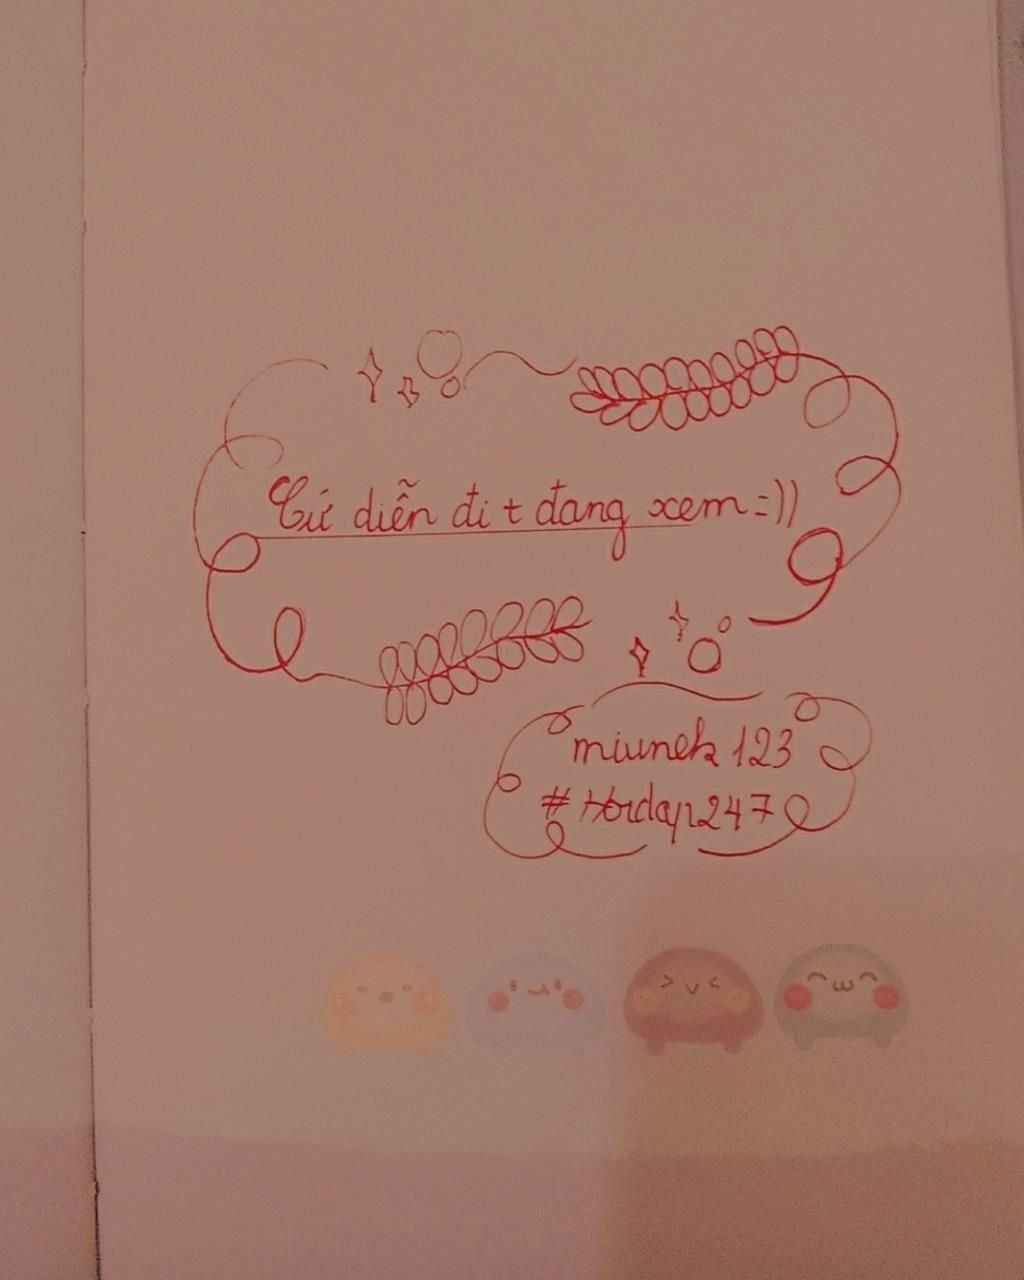 Cứ diễn đi t đang xem =))
miunek 123
#Hoidap247